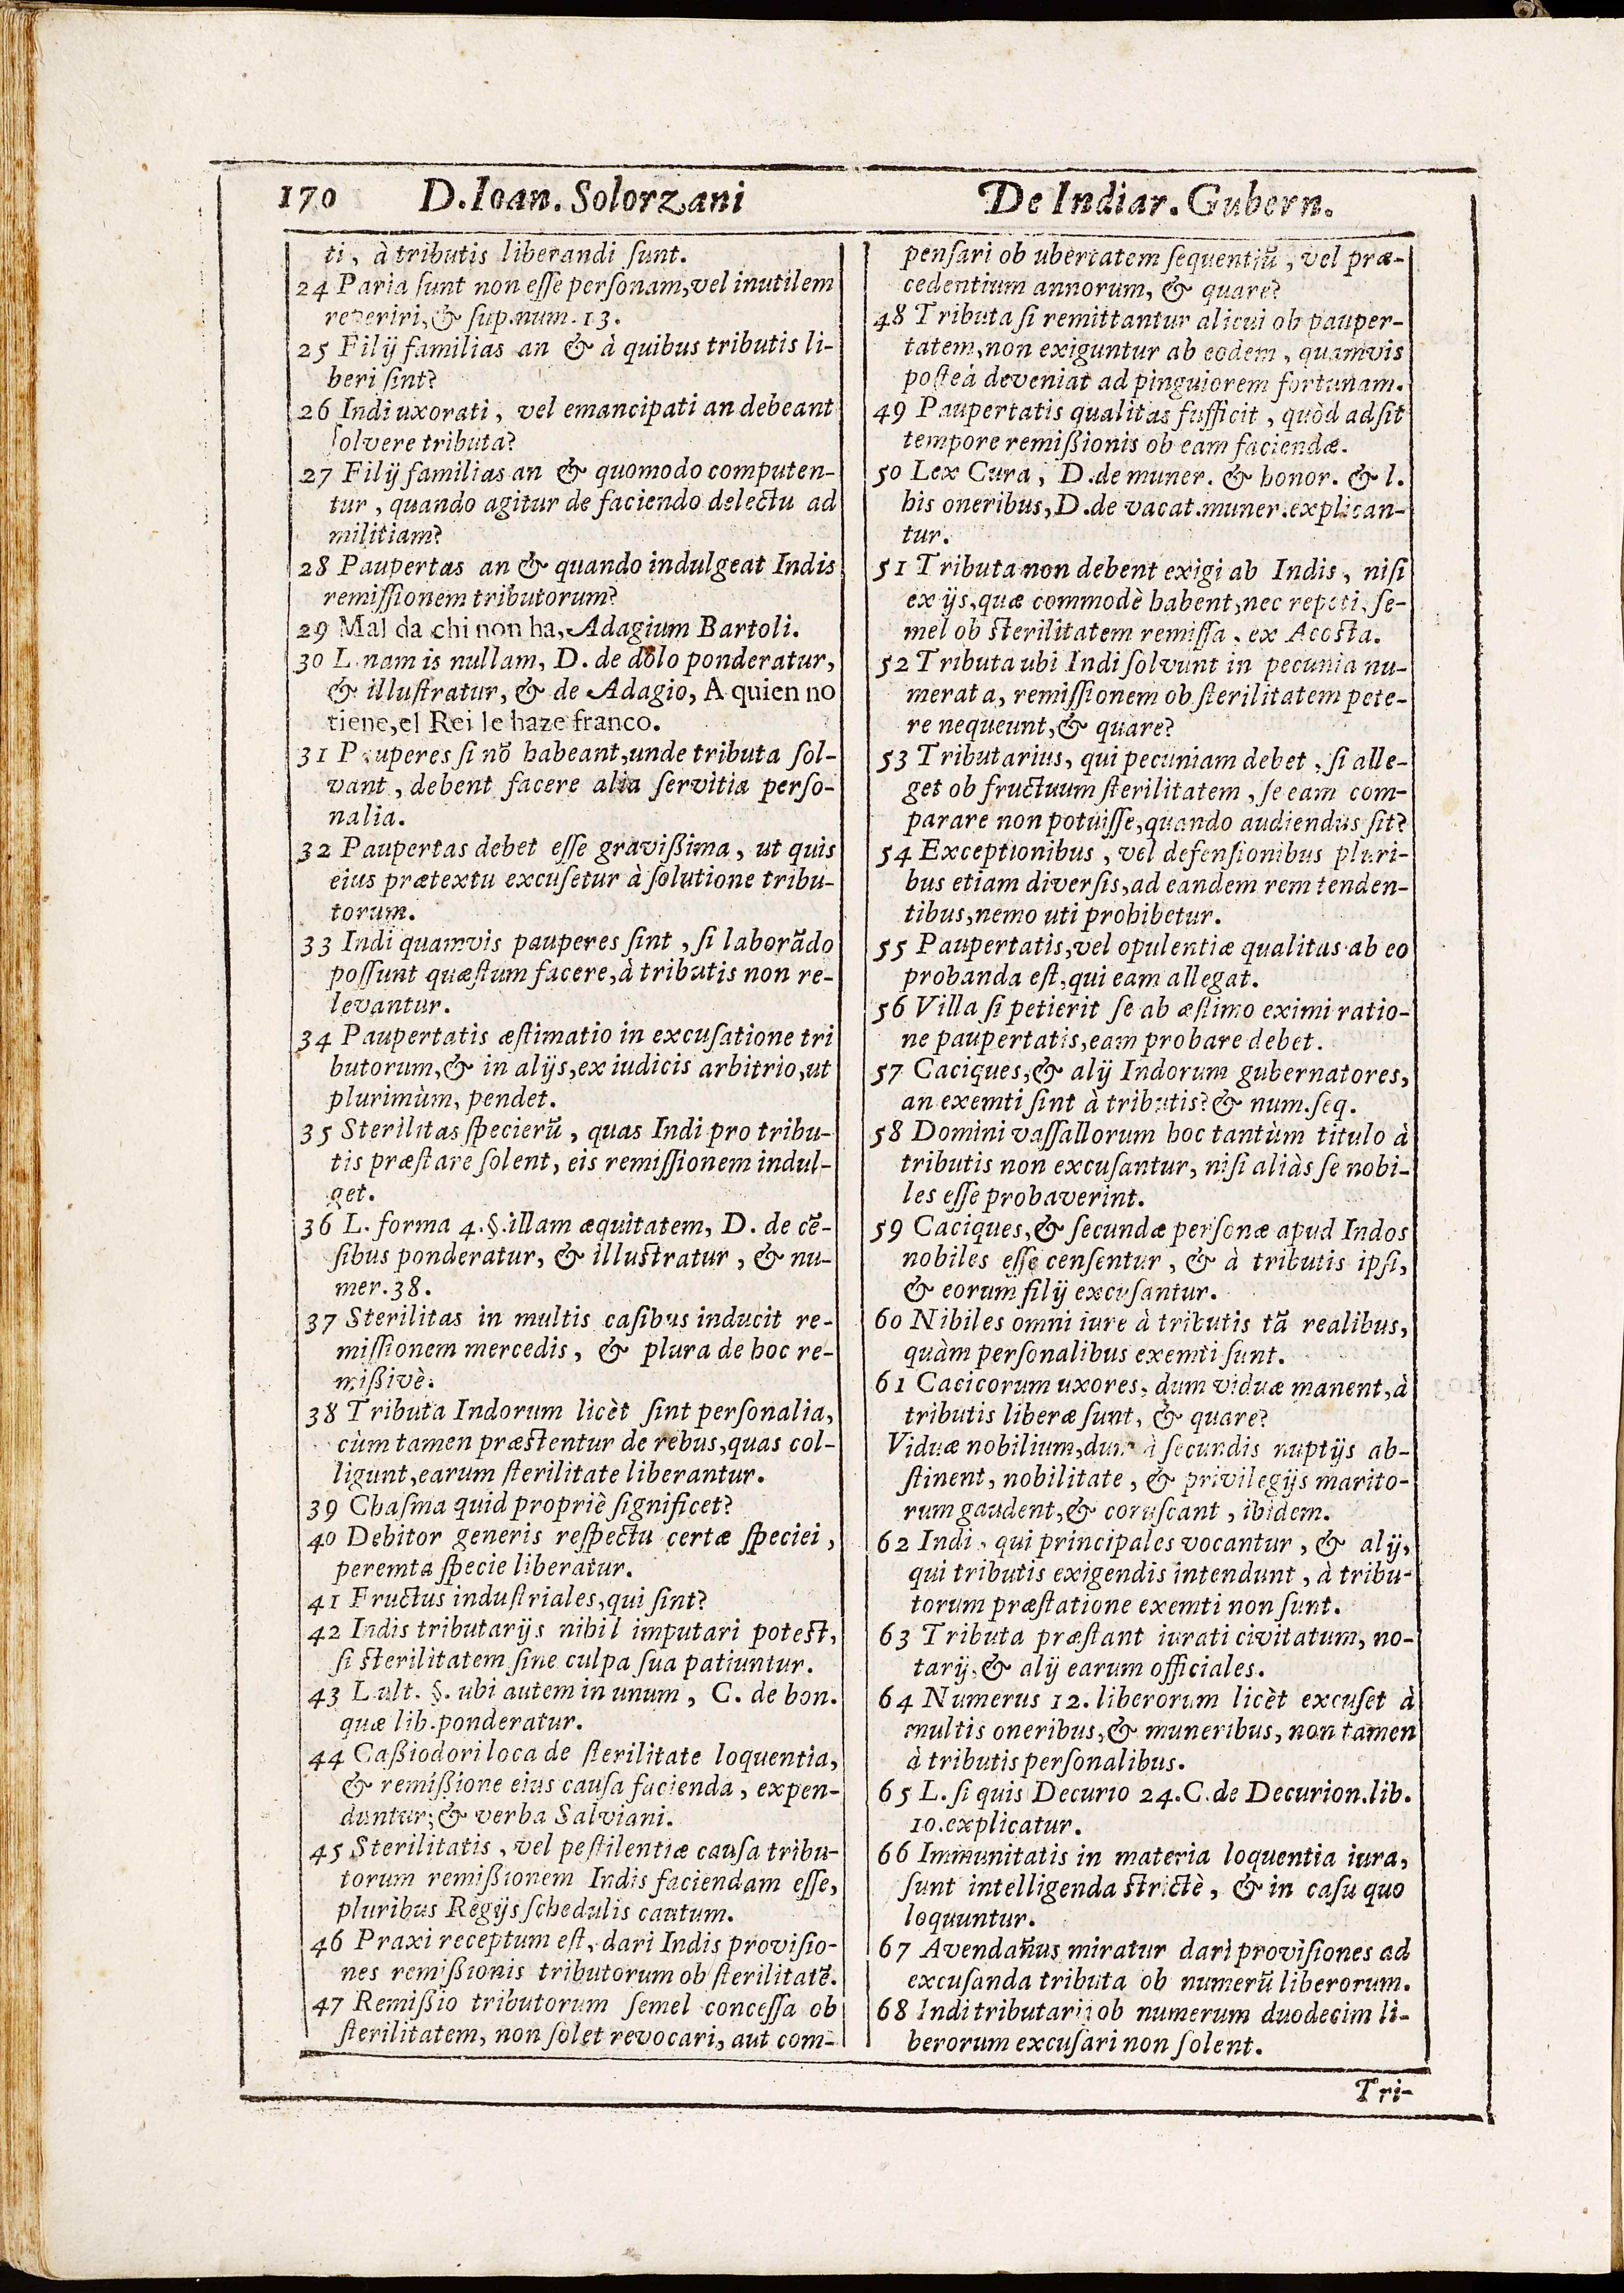 170 D.Ioan. Solorzani De Indiar. Gubern.
ti, à tributis liberandi ſunt.
24 Paria ſunt non eſſe perſonam, vel inutilem
reperiri, & ſup. num. 13.
25 Filij familias an & à quibus tributis li-
beri ſint?
26 Indi uxorati, vel emancipati an debeant
ſolvere tributa?
27 Filij familias an & quomodo computen-
tur, quando agitur de faciendo delectu ad
militiam?
28 Paupertas an & quando indulgeat Indis
remiſſionem tributorum?
29 Mal da chi non ha, Adagium Bartoli.
30 L. nam is nullam, D. de dolo ponderatur,
& illuſtratur, & de Adagio, A quien no
tiene, el Rei le haze franco.
31 Pauperes ſi nõ habeant, unde tributa ſol-
vant, debent facere alia ſervitia perſo-
nalia.
32 Paupertas debet eſſe gravißima, ut quis
eius prætextu excuſetur à ſolutione tribu-
torum.
33 Indi quamvis pauperes ſint, ſi laborãdo
poſſunt quæſtum facere, à tributis non re-
levantur.
34 Paupertatis æſtimatio in excuſatione tri
butorum, & in alijs, ex iudicis arbitrio, ut
plurimùm, pendet.
35 Sterilitas ſpecierũ, quas Indi pro tribu-
tis præſtare ſolent, eis remiſſionem indul-
get.
36 L. forma 4. §. illam æquitatem, D. de cẽ-
ſibus ponderatur, & illuſtratur, & nu-
mer. 38.
37 Sterilitas in multis caſibus inducit re-
miſſionem mercedis, & plura de hoc re-
mißivè.
38 Tributa Indorum licèt ſint perſonalia,
cùm tamen præſtentur de rebus, quas col-
ligunt, earum ſterilitate liberantur.
39 Chaſma quid propriè ſignificet?
40 Debitor generis reſpectu certæ ſpeciei,
peremta ſpecie liberatur.
41 Fructus induſtriales, qui ſint?
42 Indis tributarijs nihil imputari poteſt,
ſi ſterilitatem ſine culpa ſua patiuntur.
43 L. ult. §. ubi autem in unum, C. de bon.
quæ lib. ponderatur.
44 Caßiodori loca de ſterilitate loquentia,
& remißione eius cauſa facienda, expen-
duntur; & verba Salviani.
45 Sterilitatis, vel peſtilentiæ cauſa tribu-
torum remißionem Indis faciendam eſſe,
pluribus Regijs ſchedulis cautum.
46 Praxi receptum eſt, dari Indis proviſio-
nes remißionis tributorum ob ſterilitatẽ.
47 Remißio tributorum ſemel conceſſa ob
ſterilitatem, non ſolet revocari, aut com-
penſari ob ubertatem ſequentiũ, vel præ-
cedentium annorum, & quare?
48 Tributa ſi remittantur alicui ob pauper-
tatem, non exiguntur ab eodem, quamvis
poſteà deveniat ad pinguiorem fortunam.
49 Paupertatis qualitas ſufficit, quòd adſit
tempore remißionis ob eam faciendæ.
50 Lex Cura, D. de muner. & honor. & l.
his oneribus, D. de vacat. muner. explican-
tur.
51 Tributa non debent exigi ab Indis, niſi
ex ijs, quæ commodè habent, nec repeti, ſe-
mel ob ſterilitatem remiſſa, ex Acoſta.
52 Tributa ubi Indi ſolvunt in pecunia nu-
merata, remiſſionem ob ſterilitatem pete-
re nequeunt, & quare?
53 Tributarius, qui pecuniam debet, ſi alle-
get ob fructuum ſterilitatem, ſe eam com-
parare non potuiſſe, quando audiendus ſit?
54 Exceptionibus, vel defenſionibus pluri-
bus etiam diverſis, ad eandem rem tenden-
tibus, nemo uti prohibetur.
55 Paupertatis, vel opulentiæ qualitas ab eo
probanda eſt, qui eam allegat.
56 Villa ſi petierit ſe ab æſtimo eximi ratio-
ne paupertatis, eam probare debet.
57 Caciques, & alij Indorum gubernatores,
an exemti ſint à tributis? & num. ſeq.
58 Domini vaſſallorum hoc tantùm titulo à
tributis non excuſantur, niſi aliàs ſe nobi-
les eſſe probaverint.
59 Caciques, & ſecundæ perſonæ apud Indos
nobiles eſſe cenſentur, & à tributis ipſi,
& eorum filij excuſantur.
60 Nibiles omni iure à tributis tã realibus,
quàm perſonalibus exemti ſunt.
61 Cacicorum uxores, dum viduæ manent, à
tributis liberæ ſunt, & quare?
Viduæ nobilium, dum à ſecundis nuptijs ab-
ſtinent, nobilitate, & privilegijs marito-
rum gaudent, & coruſcant, ibidem.
62 Indi, qui principales vocantur, & alij,
qui tributis exigendis intendunt, à tribu-
torum præſtatione exemti non ſunt.
63 Tributa præſtant iurati civitatum, no-
tarij, & alij earum officiales.
64 Numerus 12. liberorum licèt excuſet à
multis oneribus, & muneribus, non tamen
à tributis perſonalibus.
65 L. ſi quis Decurio 24. C. de Decurion. lib.
10. explicatur.
66 Immunitatis in materia loquentia iura,
ſunt intelligenda ſtrictè, & in caſu quo
loquuntur.
67 Avendañus miratur dari proviſiones ad
excuſanda tributa ob numerũ liberorum.
68 Indi tributarij ob numerum duodecim li-
berorum excuſari non ſolent.
Tri-